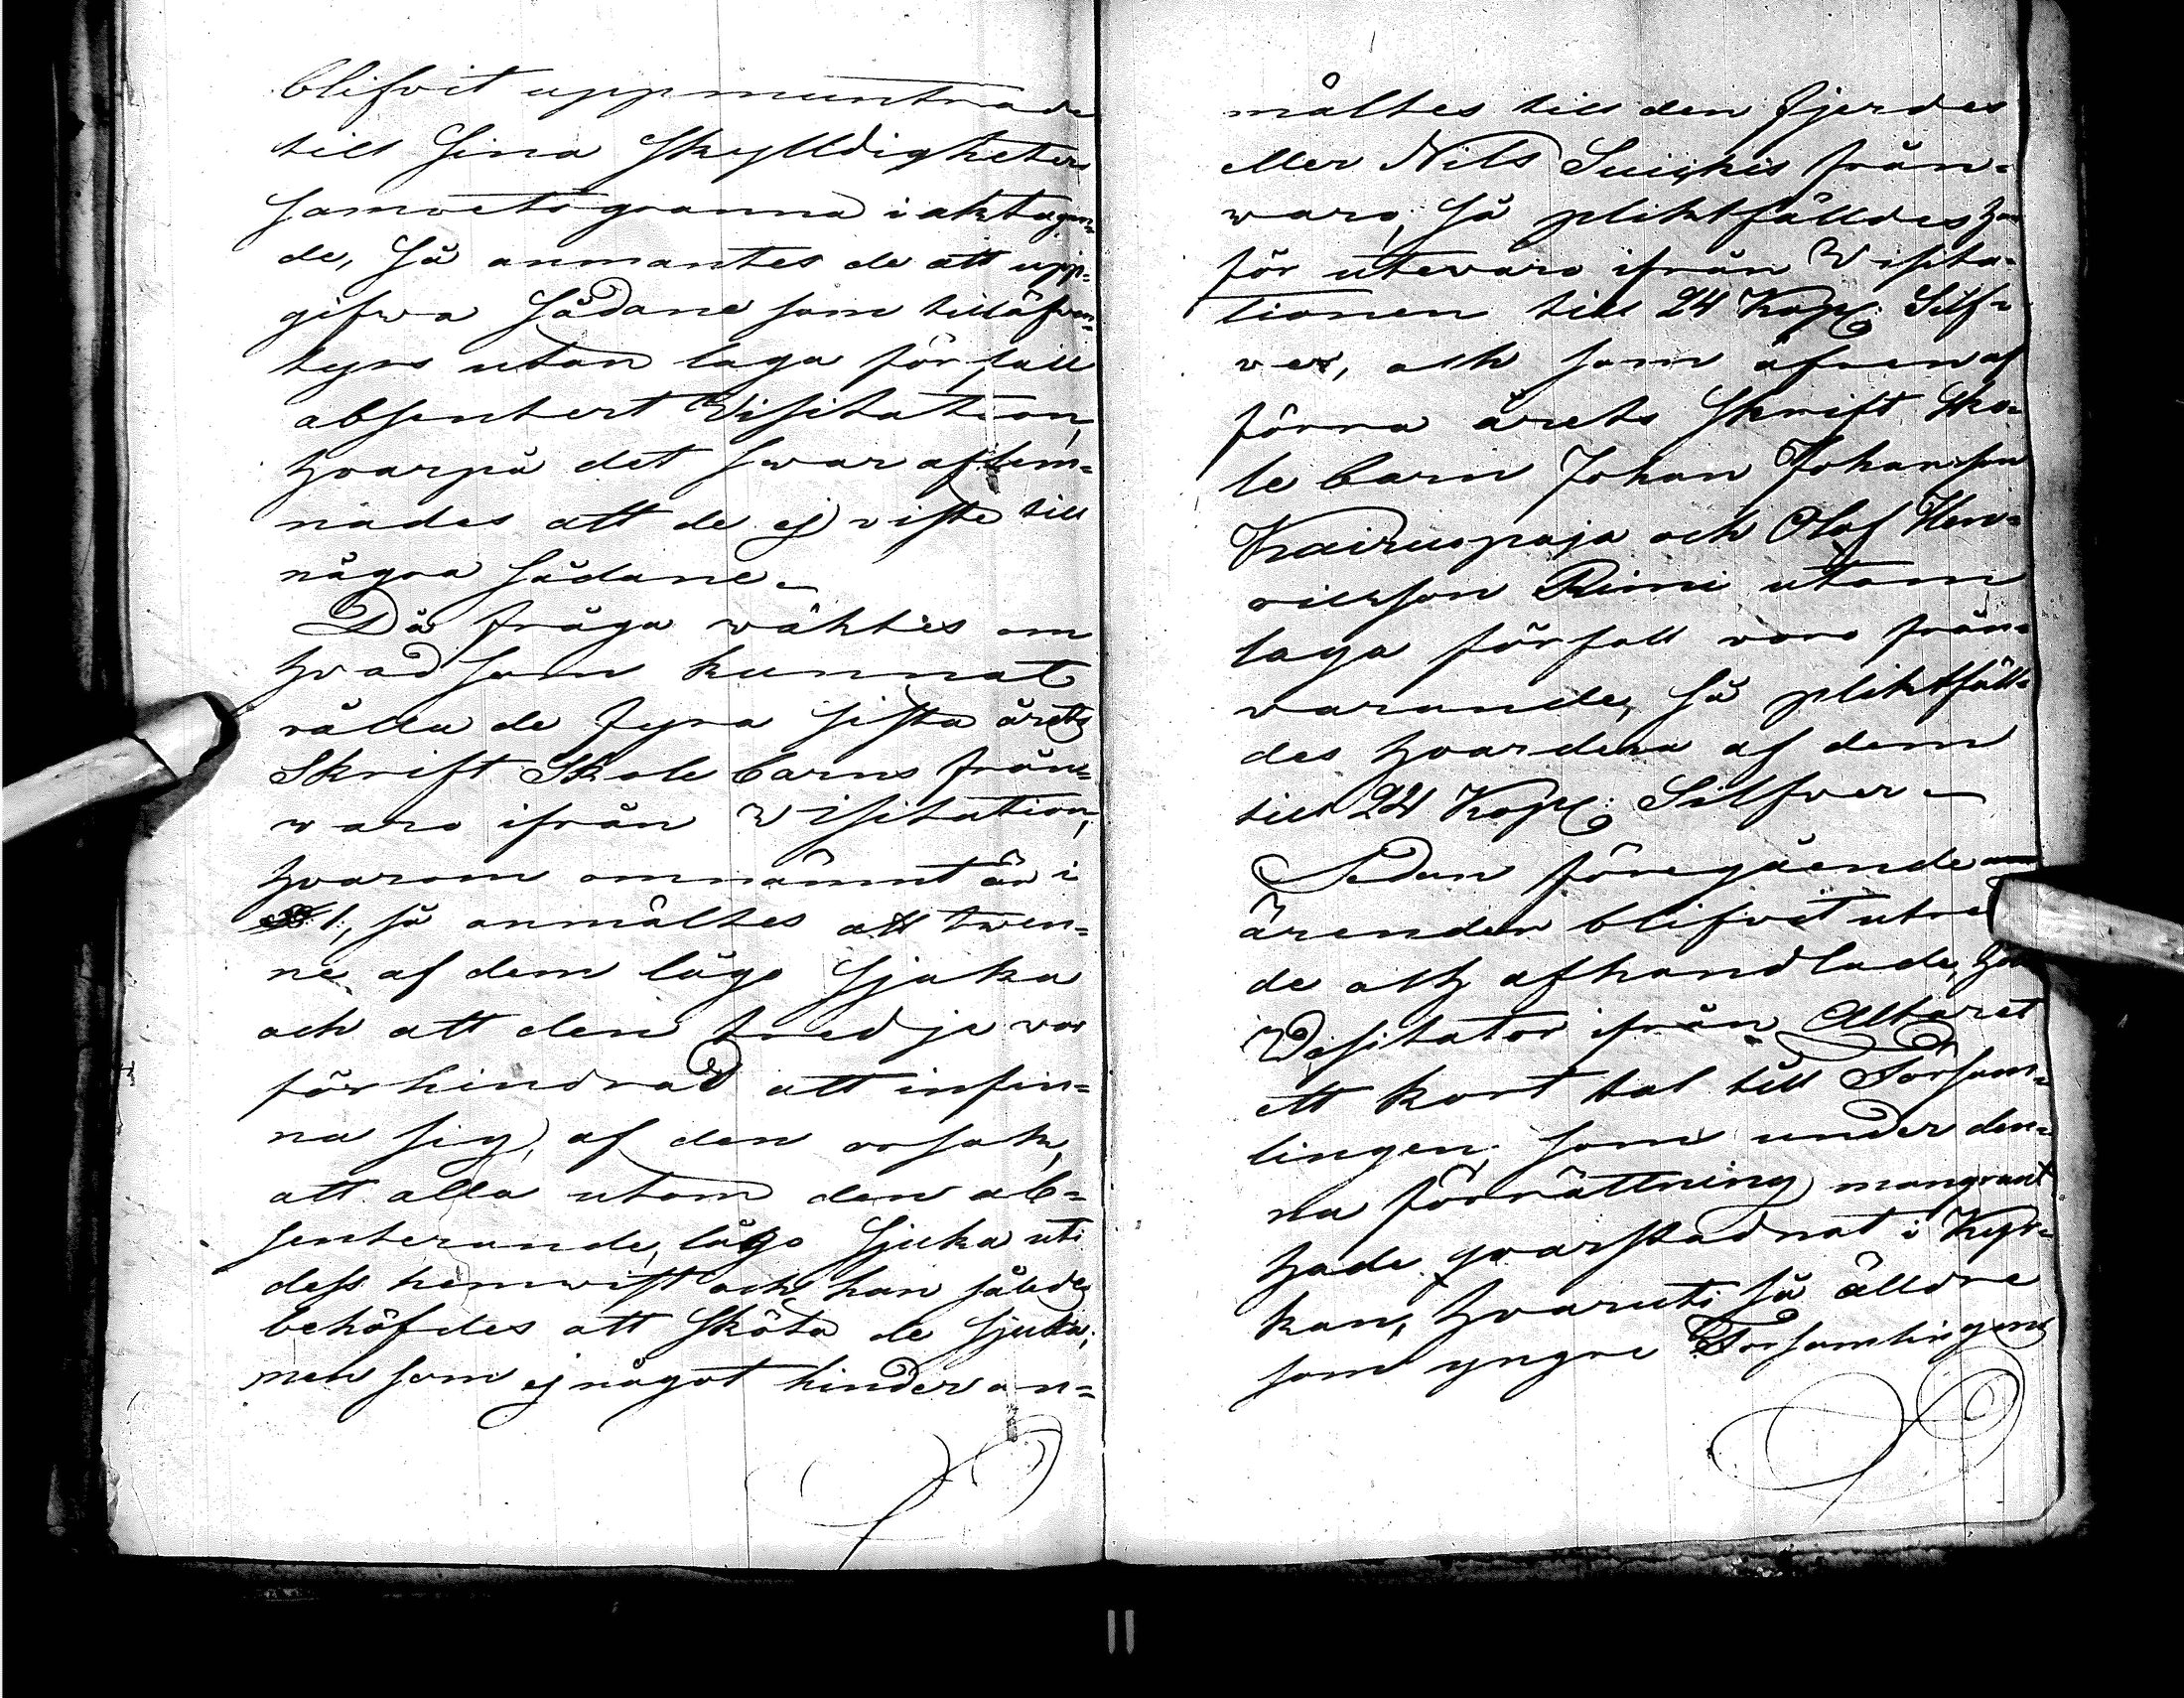 blifvit uppmuntrade
till sina skylldigheters
samvetsgranna iakttagan¬
de, så anmantes de att upp¬
gifwa sådane som tilläfwen¬
tyrs utan laga förfall
absentert Visitation,
hvarpå det swar aflem¬
nades att de ej viste till
några sådane.
Då fråga wäktes om
hvad som kunnat
vålla de fyra sista årets
Skrift Skole barns från¬
waro ifrån Wisitation,
hvarom omnämnt är i
§ 1, så anmältes att twen¬
ne af dem lågo sjuka
och att den tredje war
förhindrad att infin¬
na sig, af den orsak,
att alla utom den ab¬
senterande, lågo sjuka uti
dess hemwist och han således
behöfdes att sköta de sjuka;
men som ej något hinder an¬
mältes till den fjerdes
eller Nils Suikis från¬
waro, så pliktfälldes han
för utewaro ifrån Wisita¬
tionen till 24 Kop: Silf¬
ver, och som äfven af
förra årets Skrift Sko¬
le barn Johan Johansson
Kairuspaja och Olof Hen¬
ricsson Rimi utom
laga förfall voro från¬
warande, så pliktfäll¬
des hvardera af dem
till 24 Kop: Silfver.
Sedan föregående
ärenden blifvit utre
de och afhandlade,
Visitator ifrån Altaret
ett kort tal till Försam¬
lingen, som under den¬
na förrättning mangrant
hade qvarstadnat i Kyr¬
kan, hvaruti så älldre
som yngre Församlingens